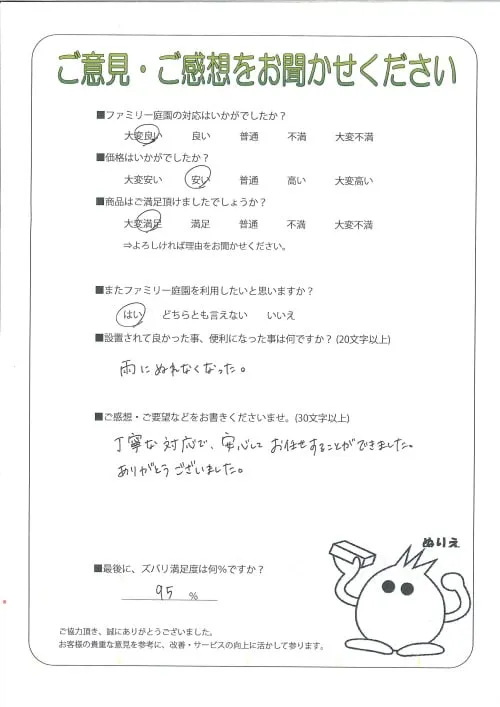 ご意見・ご感想をお聞かせください
■ファミリー庭園の対応はいかがでしたか？
大変良い 良い 普通 不満 大変不満
■価格はいかがでしたか？
大変安い 安い 普通 高い 大変高い
■商品はご満足頂けましたでしょうか？
大変満足 満足 普通 不満 大変不満
⇒よろしければ理由をお聞かせください。
■またファミリー庭園を利用したいと思いますか？
はい どちらとも言えない いいえ
■設置されて良かった事、便利になった事は何ですか？(20文字以上)
雨にぬれなくなった。
■ご感想・ご要望などをお書きくださいませ。(30文字以上)
丁寧な対応で、安心してお任せすることができました。
ありがとうございました。
ぬりえ
■最後に、ズバリ満足度は何％ですか？
95 %
ご協力頂き、誠にありがとうございました。
お客様の貴重な意見を参考に、改善・サービスの向上に活かして参ります。